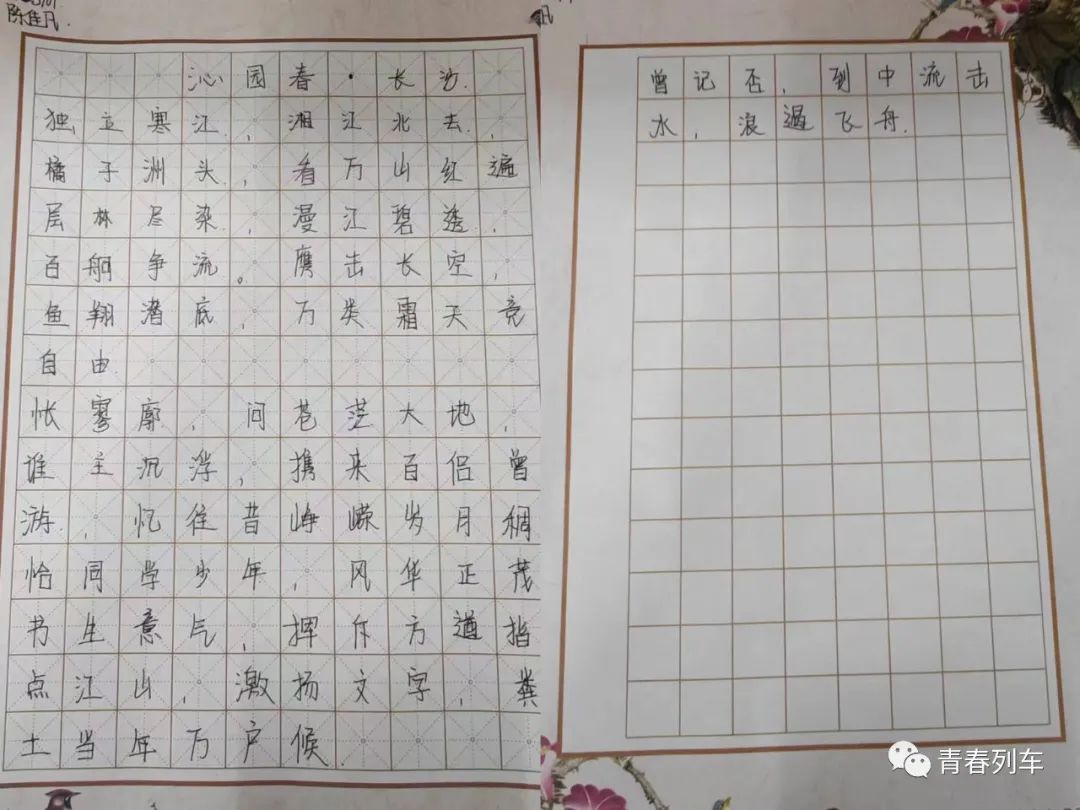 陈佳凡
沁园春·长沙.
独立寒江,湘江北去,
橘子洲头,看万山红遍
层林尽染,漫江碧透,
百舸争流。鹰击长空,
鱼翔潜底,万类霜天竞
自由.
怅寥廓,问苍茫大地,
谁主沉浮,携来百侣曾
游,忆往昔峥嵘岁月稠
恰同学少年,风华正茂
书生意气,挥斥方遒指
点江山,激扬文字,粪
土当年万户候.
凡
曾记否,到中流击
水,浪遏飞舟.
青春列车